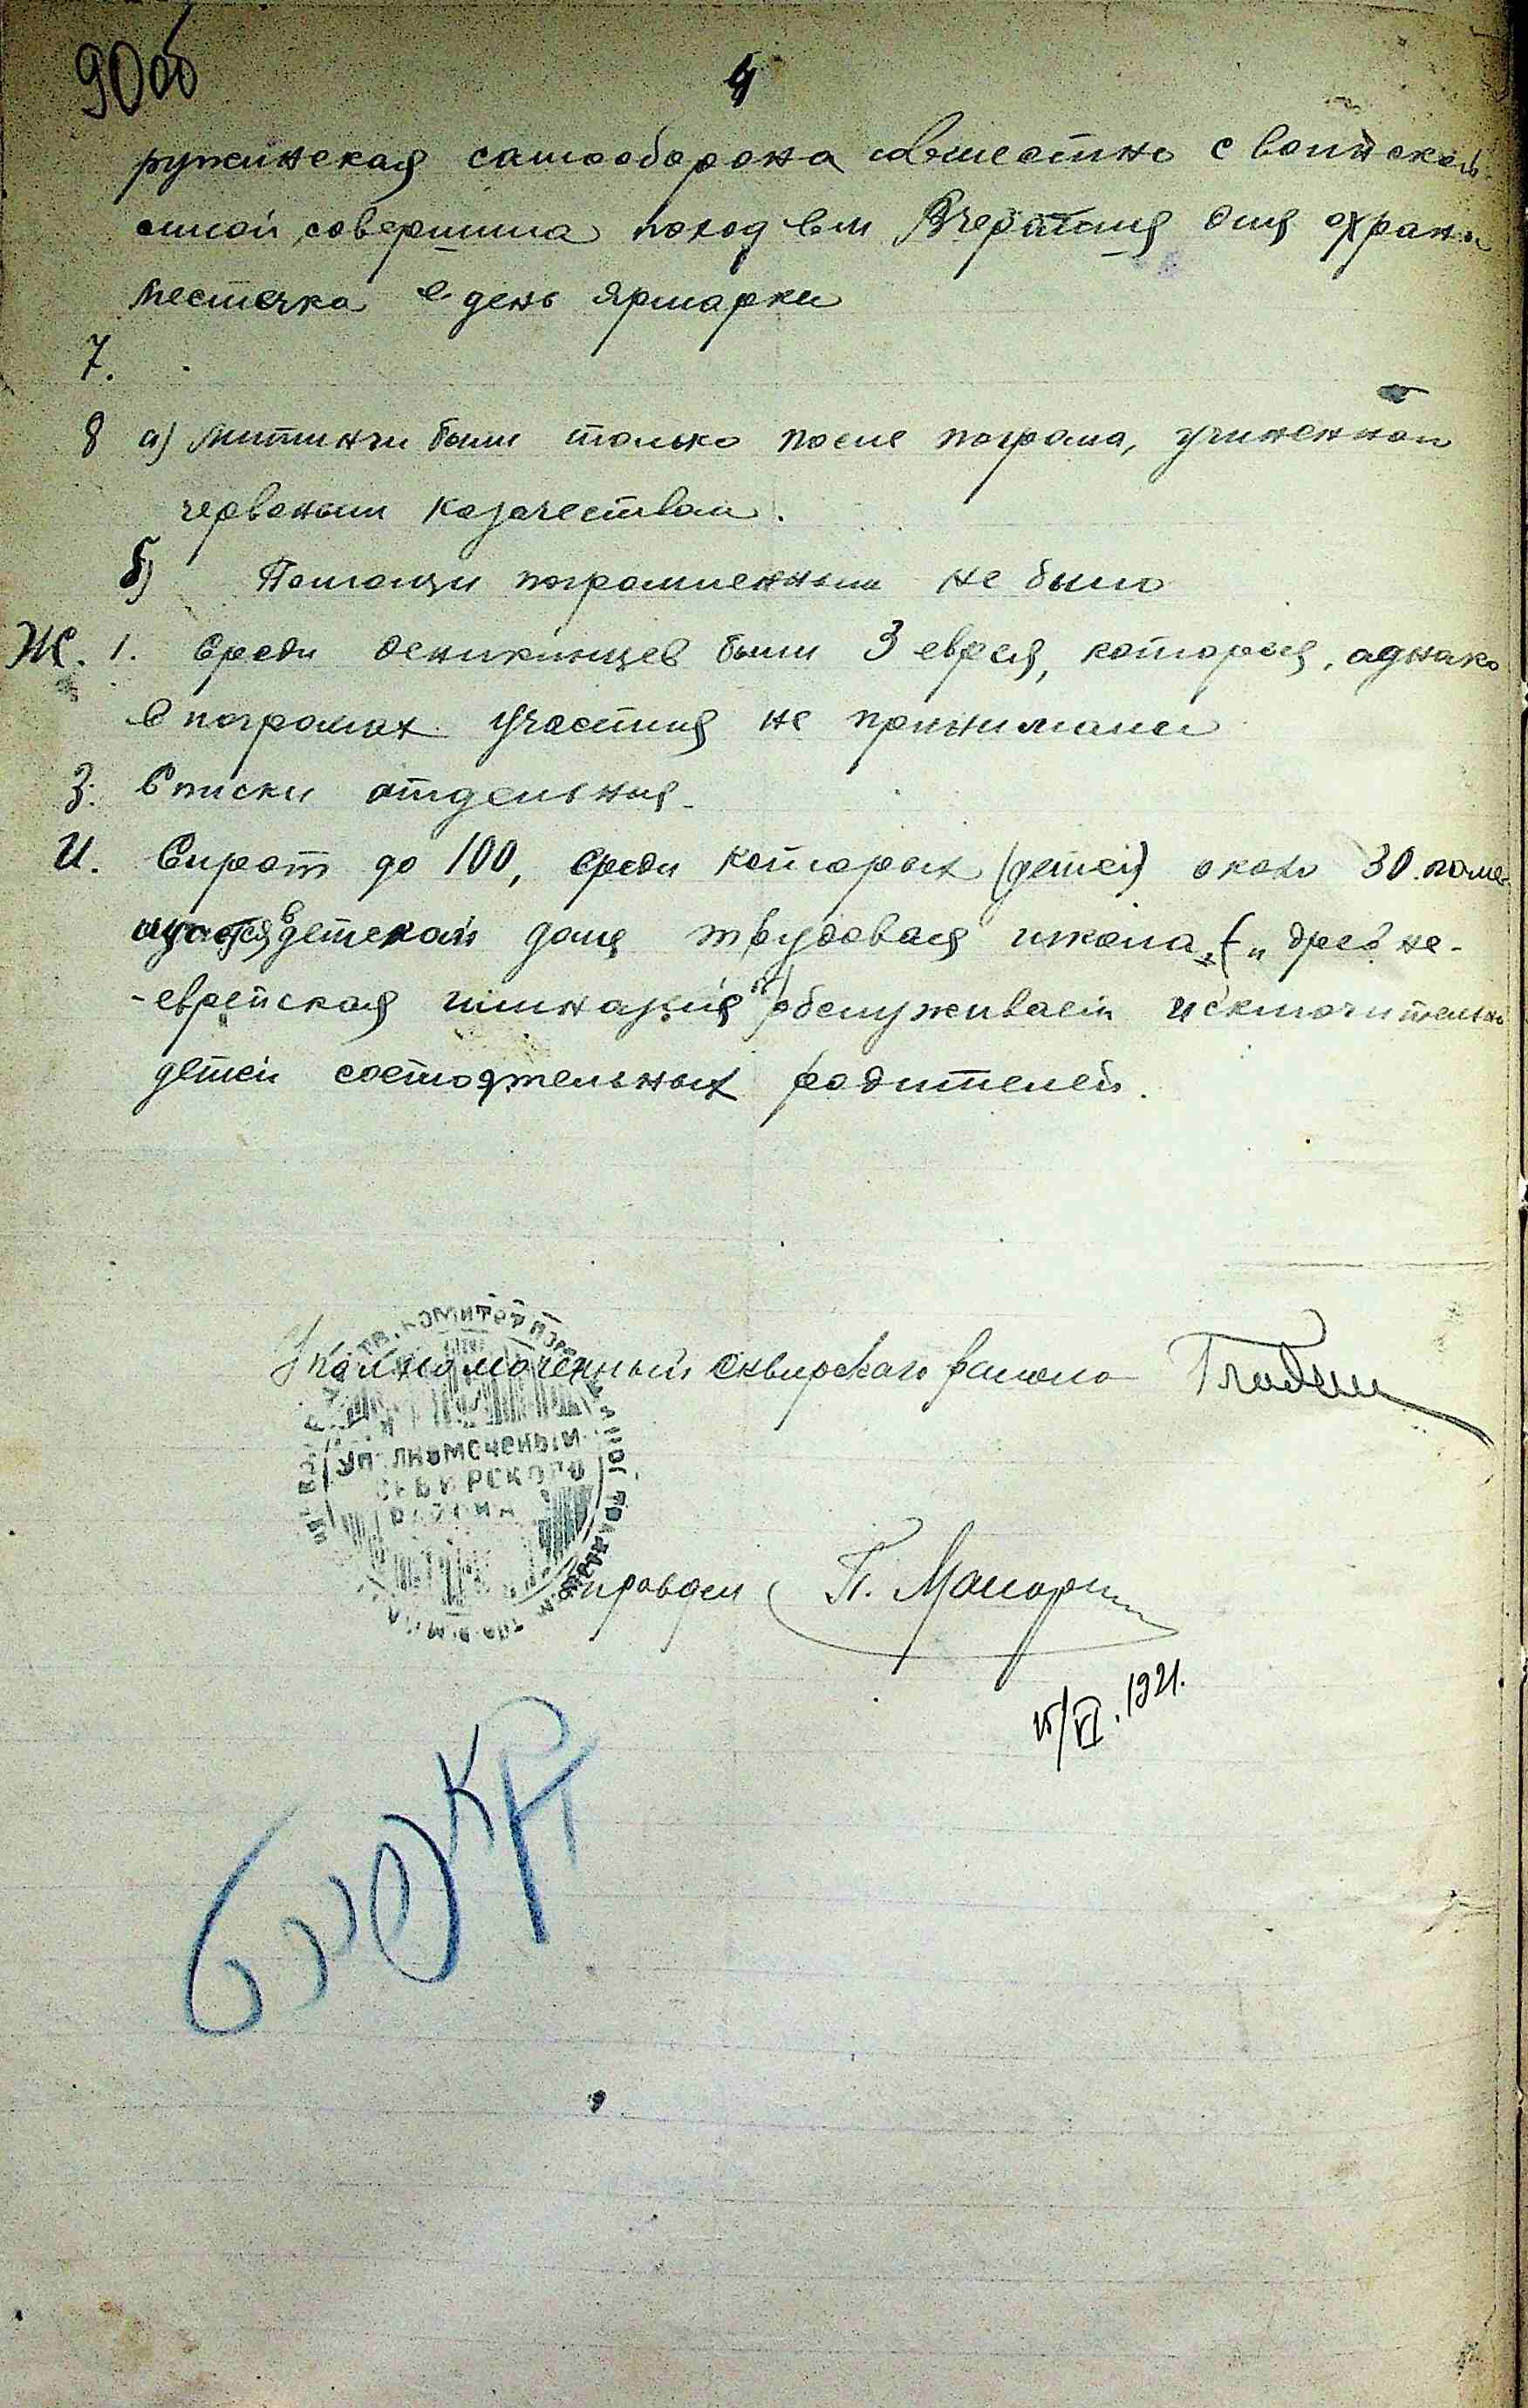 90об
4
ружинская самооборона совместно с воинской
силой совершила поход в м Вчерайше для охраны
местечка в день ярмарки
7.
8 а) Митинги были только после погрома, учиненной
червоным козачеством.
б) Помощи погромленным не было
Ж. 1. Среди деникинцев были 3 еврея, которыя, однако
в погромах участия не принимали
З. Списки отдельныя.
И. Сирот до 100, среди которых (детей) около 30. поме-
щается в детском доме трудовая школа, („древне-
-еврейская гимназия") обслуживает исключительно
детей состоятельных родителей.
Уполномоченный Сквирского района
УПОЛНОМОЧЕНЫЙ
СКВИРСКОГО
РАЙОНА
КОМИТЕТ
Управдел П.
15/VI. 1921.